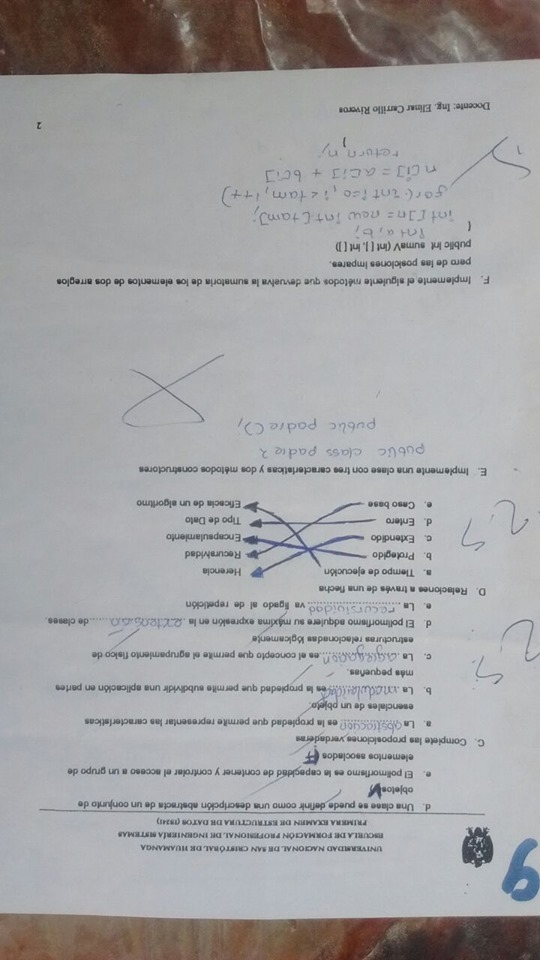 9
UNIVERSIDAD NACIONAL DE SAN CRISTÓBAL DE HUAMANGA
ESCUELA DE FORMACIÓN PROFESIONAL DE INGENIERÍA SISTEMAS
PRIMERA EXAMEN DE ESTRUCTURA DE DATOS (IS241)
d. Una clase se puede definir como una descripción abstracta de un conjunto de
objetos V
e. El polimorfismo es la capacidad de contener y controlar el acceso a un grupo de
elementos asociados F
C. Complete las proposiciones verdaderas
a. La abstracción es la propiedad que permite representar las características
esenciales de un objeto.
b. La modularidad es la propiedad que permite subdividir una aplicación en partes
más pequeñas.
c. La agregación es el concepto que permite el agrupamiento físico de
estructuras relacionadas lógicamente
d. El polimorfismo adquiere su máxima expresión en la extensión de clases.
e. La recursividad va ligado al de repetición
D. Relaciones a través de una flecha
a. Tiempo de ejecución Herencia
b. Protegido Recursividad
c. Extendido Encapsulamiento
d. Entero Tipo de Dato
e. Caso base Eficacia de un algoritmo
E. Implemente una clase con tres características y dos métodos constructores
public class padre {
public padre();
F. Implemente el siguiente métodos que devuelva la sumatoria de los elementos de dos arreglos
pero de las posiciones impares.
public int sumaV (int [ ], int [ ])
{ int a, b;
int []n= new int[tam];
for( int i=0, i<tam, i++)
n[i] = a[i] + b[i]
return n;
}
2
Docente: Ing. Elinar Carrillo Riveros